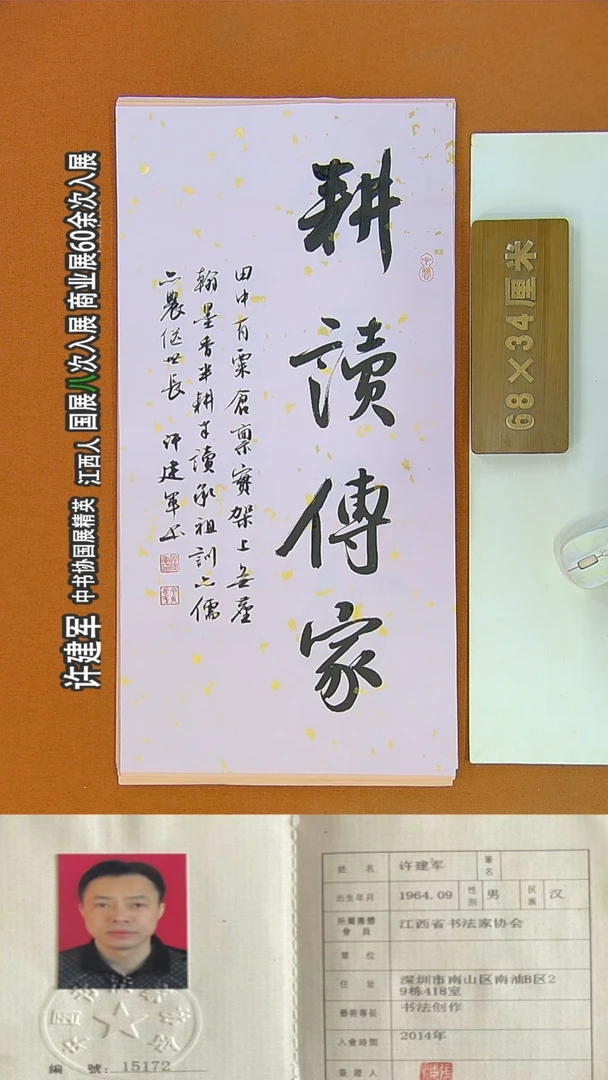 耕讀傳家
田中有粟倉禀實架上無塵
翰墨香半耕半讀承祖訓亦儒
亦農繼世長 許建军书
68×34厘米
许建军 中书协国展精英 江西人 国展八次入展 商业展60余次入展
姓名 许建军 筆名
出生年月 1964.09 性別 男 民族 汉
所屬團體會員 江西省书法家协会
單位
住址 深圳市南山区南油B区2
9栋418室
藝術專長 书法创作
入會時間 2014年
簽證人
編號: 15172